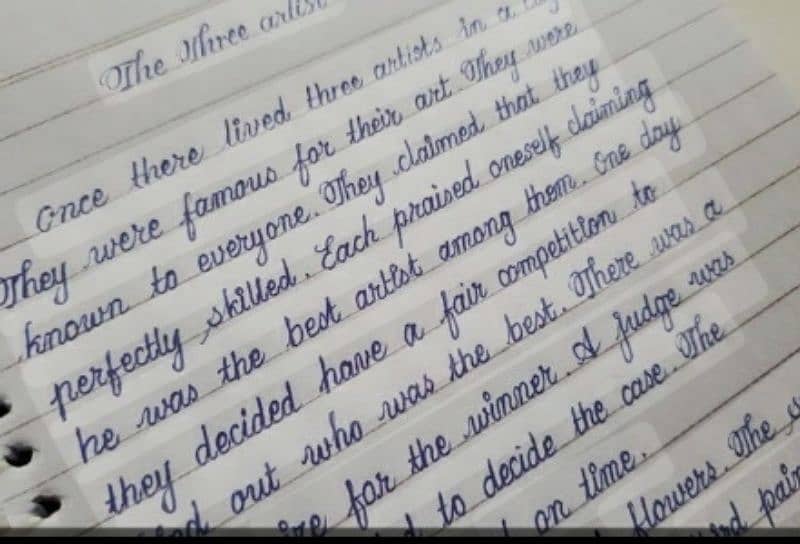 The Three artist
Once there lived three artists in a
They were famous for their art. They were
known to everyone. They claimed that they
perfectly skilled. Each praised oneself claiming
he was the best artist among them. One day
they decided have a fair competition to
out who was the best. There was a
for the winner. A judge was
to decide the case. The
on time.
flowers. The